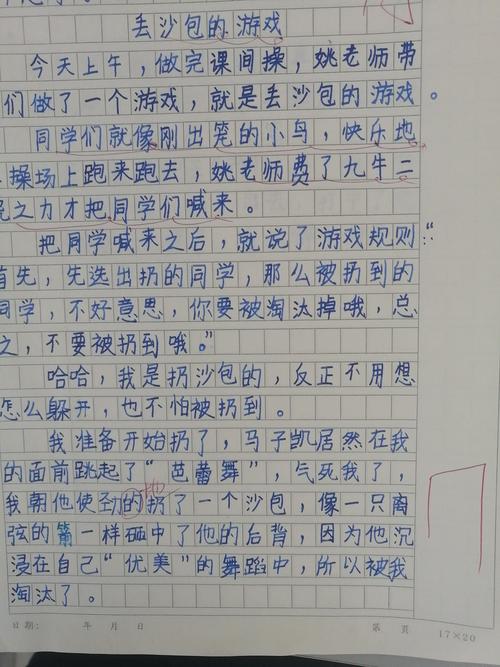 丢沙包的游戏
今天上午，做完课间操，姚老师带
们做了一个游戏，就是丢沙包的游戏。
同学们就像刚出笼的小鸟，快乐地
操场上跑来跑去，姚老师费了九牛二
之力才把同学们喊来。
把同学喊来之后，就说了游戏规则：“
首先，先选出扔的同学，那么被扔到的
同学，不好意思，你要被淘汰掉哦，总
之，不要被扔到哦。”
哈哈，我是扔沙包的，反正不用想
怎么躲开，也不怕被扔到。
我准备开始扔了，马子凯居然在我
的面前跳起了“芭蕾舞”，气死我了，
我朝他使劲的地扔了一个沙包，像一只离
弦的箭一样砸中了他的后背，因为他沉
浸在自己“优美”的舞蹈中，所以被我
淘汰了。
日期： 年 月 日 第 页
17×20